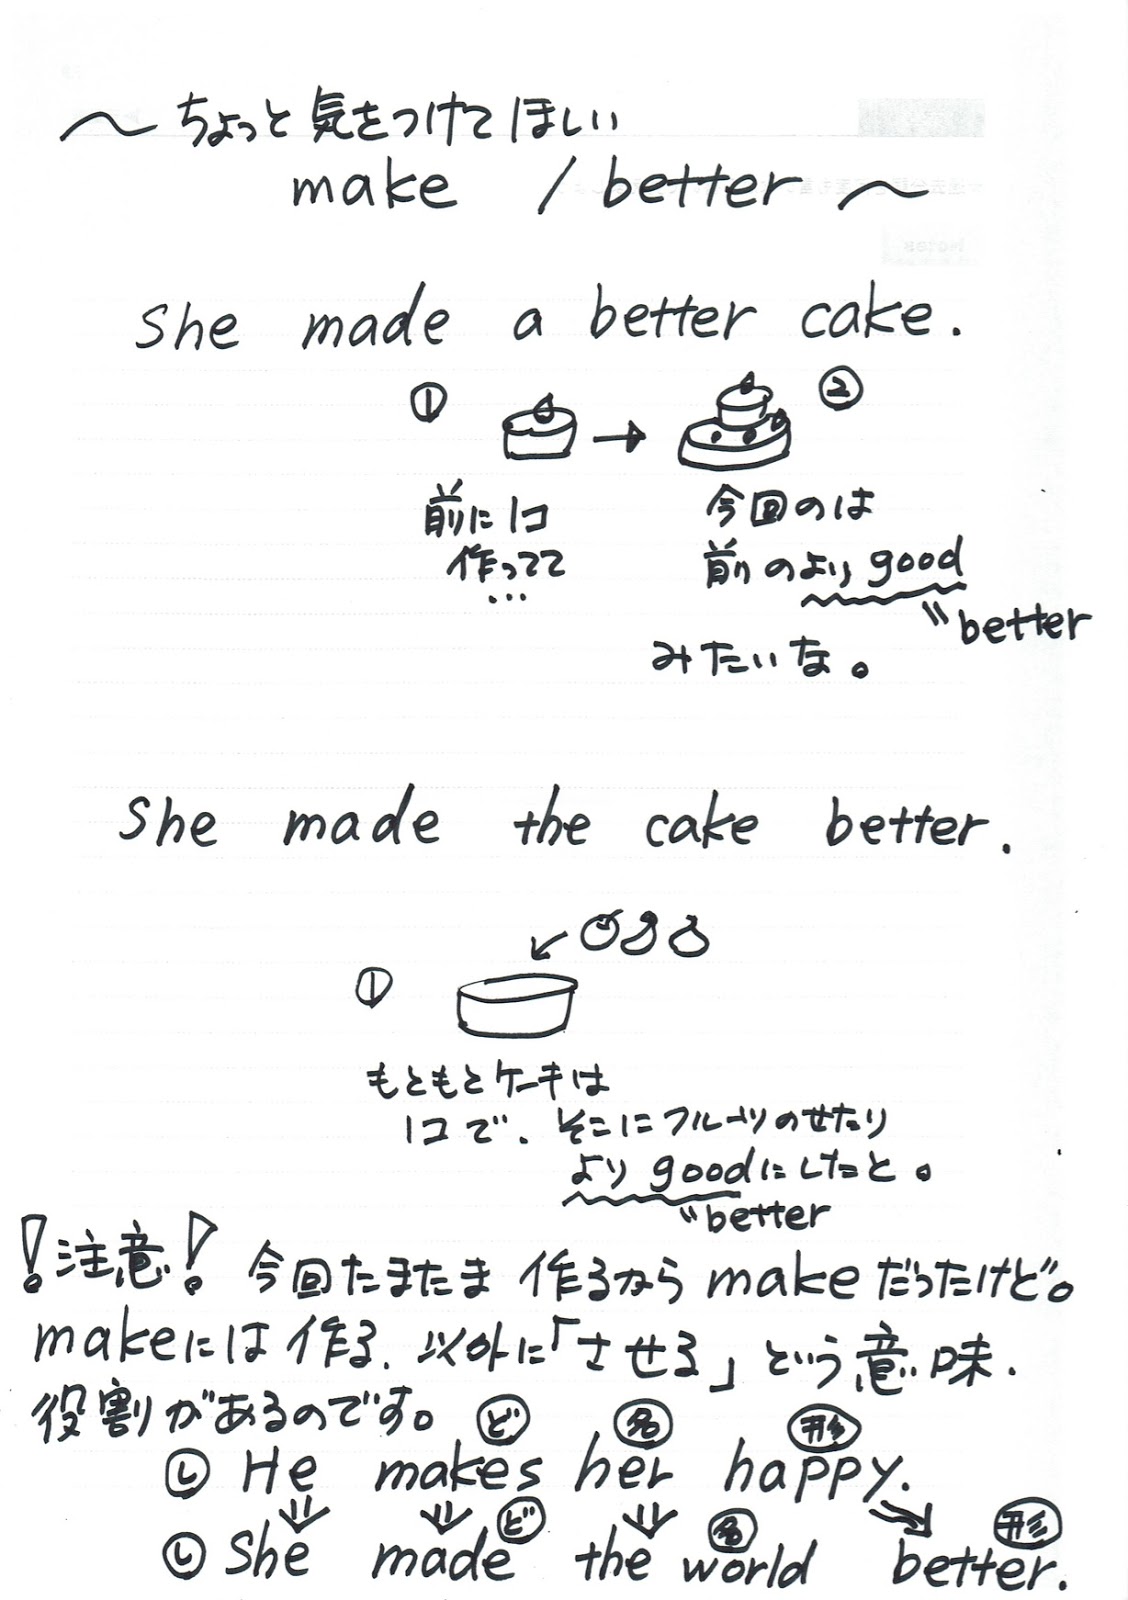 〜ちょっと気をつけてほしい
make / better〜
She made a better cake.
① → ②
前に1コ
作ってて
…
今回のは
前のより good
〃better
みたいな。
She made the cake better.
①
もともとケーキは
1コで、そこにフルーツのせたり
より goodにしたと。
〃better
!注意! 今回たまたま 作るから makeだったけど。
makeには 作る、以外に「させる」という意味、
役割があるのです。
ど 名 形
し He makes her happy.
ど 名 形
し She made the world better.